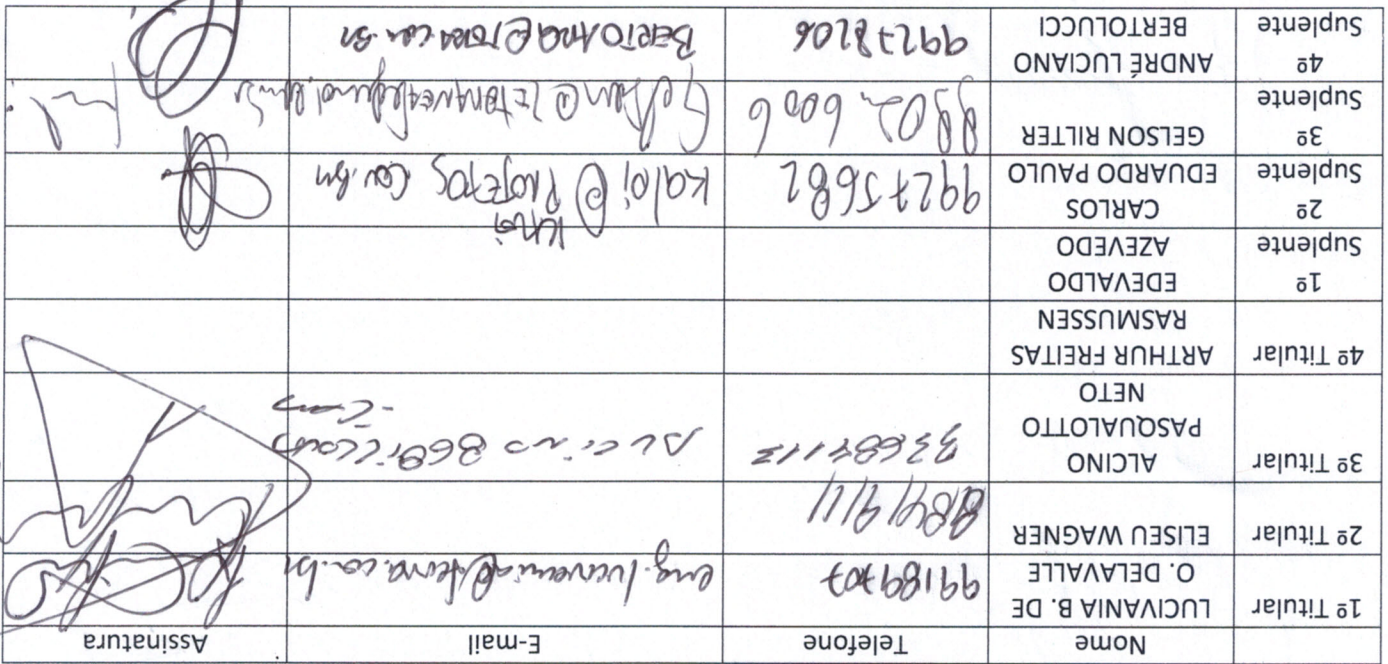 Nome Telefone E-mail Assinatura
1º Titular LUCIVANIA B. DE O. DELAVALLE 99189707 eng.lucivania@terra.com.br
2º Titular ELISEU WAGNER 98419111
3º Titular ALCINO PASQUALOTTO NETO 33684112
4º Titular ARTHUR FREITAS RASMUSSEN
1º Suplente EDEVALDO AZEVEDO
2º Suplente CARLOS EDUARDO PAULO 99275682
3º Suplente GELSON RILTER 9902.6006
4º Suplente ANDRÉ LUCIANO BERTOLUCCI 99278206